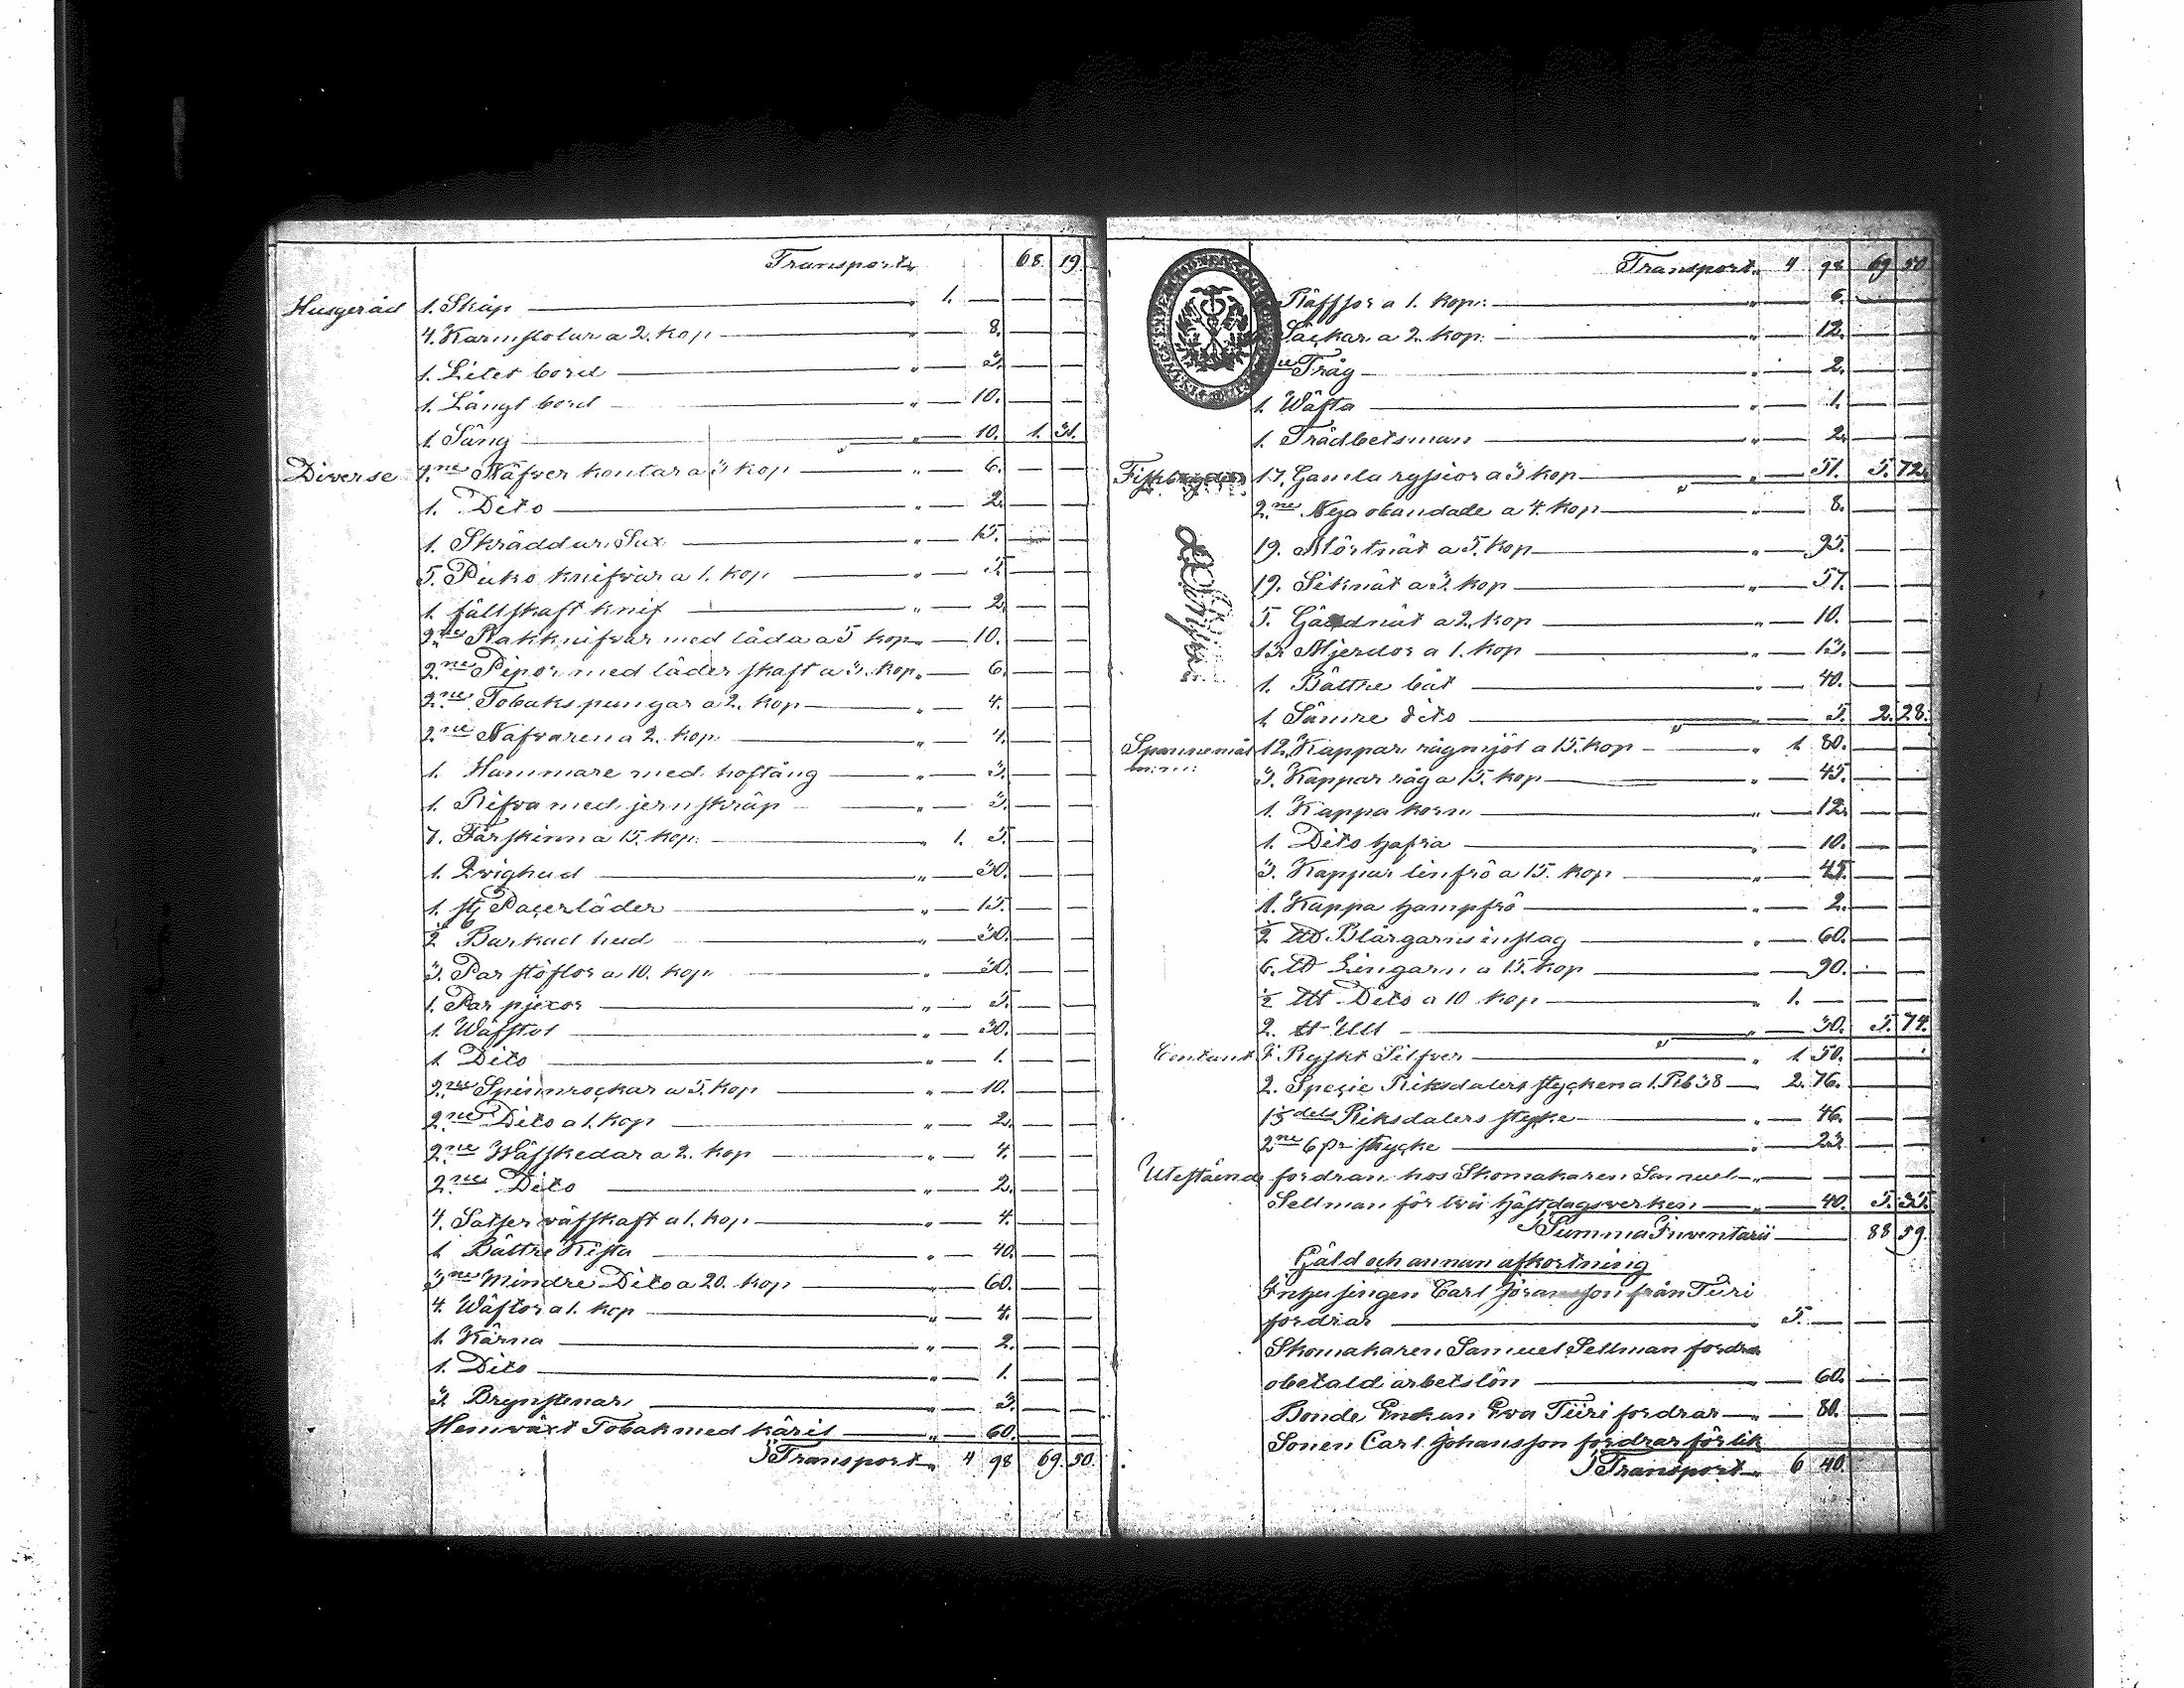 Transport 68. 19.
Husgeråd 1. Skåp " 1. — — —
4. Karmstolar a 2. kop " — 8. — —
1. Litet bord " — 3. — —
1. Långt bord " — 10. — —
1. Säng " — 10. 1. 31.
Diverse 2.ne Näfver kontar a 3 kop " — 6. — —
1. Dito " — 2. — —
1. Skräddur Sax " — 15. — —
5. Puko knifvar a 1. kop " — 5. — —
1. fällskaft knif " — 2. — —
2.ne Rakknifvar med låda a 5 kop " — 10. — —
2.ne Pipor med läder skaft a 3. kop " — 6. — —
2.ne Tobaks pungar a 2. kop " — 4. — —
2.ne Nafvaren a 2. kop " — 4. — —
1. Hammare med hoftång " — 3. — —
1. Rifva med jernskråp " — 3. — —
7. Fårskinn a 15. kop. " 1. 5. — —
1. Qvighud " — 30. — —
1. st Paçerläder " — 15. — —
½ Barkad hud " — 30. — —
3. Par stöflor a 10. kop " — 30. — —
1. Par pjexor " — 5. — —
1. Wäfstol " — 30. — —
1. Dito " — 1. — —
2.ne Spinnrockar a 5. kop " — 10. — —
2.ne Dito a 1. kop " — 2. — —
2.ne Wäfskedar a 2. kop " — 4. — —
2.ne Dito " — 2. — —
4. Satser väfskaft a 1. kop " — 4. — —
1. Bättre Kista " — 40. — —
3.ne Mindre Dito a 20. kop " — 60. — —
4. Wäftor a 1. kop " — 4. — —
1. Kärna " — 2. — —
1. Dito " — 1. — —
3. Brynstenar " — 3. — —
Hemväxt Tobak med käril " — 60. — —
Transport " 4 98 69. 50.
Transport " 4 98 69 50
Räffsor a 1. kop: " — 6. — —
Säckar a 2. kop: " — 12. — —
Tråg " — 2. — —
1. Wäfta " — 1. — —
1. Trädbetsman " — 2. — —
17. Gamla ryssior a 3 kop " — 51. 5. 72.
2.ne Nya obandade a 4. kop " — 8. — —
19. Mörtnät a 5. kop " — 95. — —
19. Siknät a 3. kop " — 57. — —
5. Gäddnät a 2. kop " — 10. — —
13. Mjerdor a 1. kop " — 13. — —
1. Bättre båt " — 40. — —
1. Sämre dito " — 5. 2. 28.
Spannemål 12. Kappar rågmjöl a 15. kop " 1. 80. — —
3. Kappar råg a 15. kop " — 45. — —
1. Kappa korn " — 12. — —
1. Dito hafra " — 10. — —
3. Kappar linfrö a 15. kop " — 45. — —
1. Kappa hampfrö " — 2. — —
½ LU Blårgarns inslag " — 60. — —
6. U Lingarn a 15. kop " — 90. — —
½ LU Dito a 10 kop " 1. — — —
2. U Ull " — 30. 5. 74.
Contant I Ryskt Silfver " 1. 50. — —
2. Speçie Riksdalers stycken a 1. Rb 38 — 2. 76. — —
1 ⅓ dels Riksdalers stycke " — 46. — —
2.ne 6 p:r stycke " — 23. — —
Utestående fordran hos Skomakaren Samuel " — — — —
Sellman för två hästdagsverken " — 40. 5. 35.
Summa Inventarii 88 59.
Gäld och annan afkortning
Inhysingen Carl Jöransson från Türi
fordrar " 5. — — —
Skomakaren Samuel Sellman fordra
obetald arbetslön " — 60. — —
Bonde Enkan Eva Türi fordrar " — 80. — —
Sonen Carl Johansson fordrar för lik
Transport " 6 40.